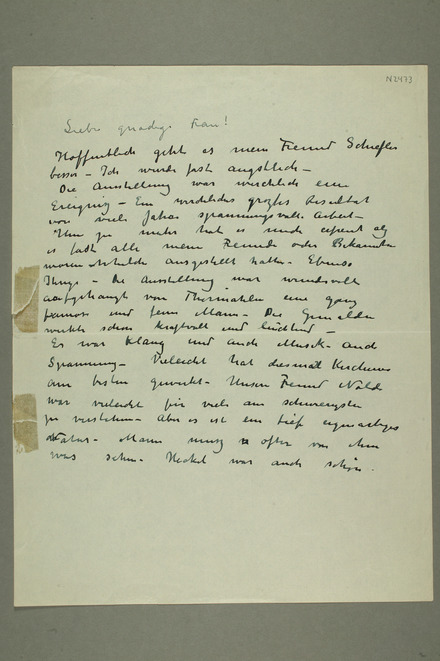 N2473
Liebe gnädige Frau!
Hoffentlich geht es mein Freund Schiefler
besser – Ich wurde fast angstlich –
Die Ausstellung war wirchlich ein
Ereignig – Ein wirchliches großes Resultat
von viele Jahre spannungsvolle Arbeit –
Um zu mehr hat es mich erfreut als
es fast alle mein Freunde oder Bekannte
waren ausgestellt hatten – Ebenso
Thyge – Die Ausstellung war wundervoll
aufgehangt von Thormählen eine ganz
famose und feine Mann – Die Gemälden
wirkte schon kraftvoll und
Es war Klang und auch Musik – and
Spannung – Vieleicht hat diesmal Kirchner
am besten gewirkt – Unsere Freund Nolde
war vieleicht für viele am schwerigsten
zu verstehen – Aber es ist ein tief eigenartiges
Natur – Mann muss öfter von ihm
was sehn – Heckel war auch schön.